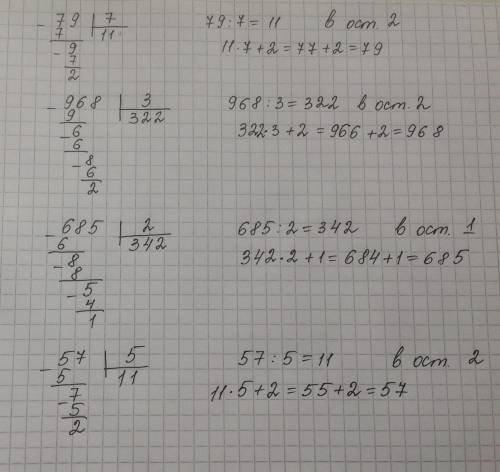 - 79 | 7        79 : 7 = 11    в ост. 2
7 | 11        11 · 7 + 2 = 77 + 2 = 79
- 9
7
2
- 968 | 3        968 : 3 = 322    в ост. 2
9 | 322        322 · 3 + 2 = 966 + 2 = 968
- 6
6
- 8
6
2
- 685 | 2        685 : 2 = 342    в ост. 1
6 | 342        342 · 2 + 1 = 684 + 1 = 685
- 8
8
- 5
4
1
- 57 | 5        57 : 5 = 11    в ост. 2
5 | 11        11 · 5 + 2 = 55 + 2 = 57
- 7
5
2